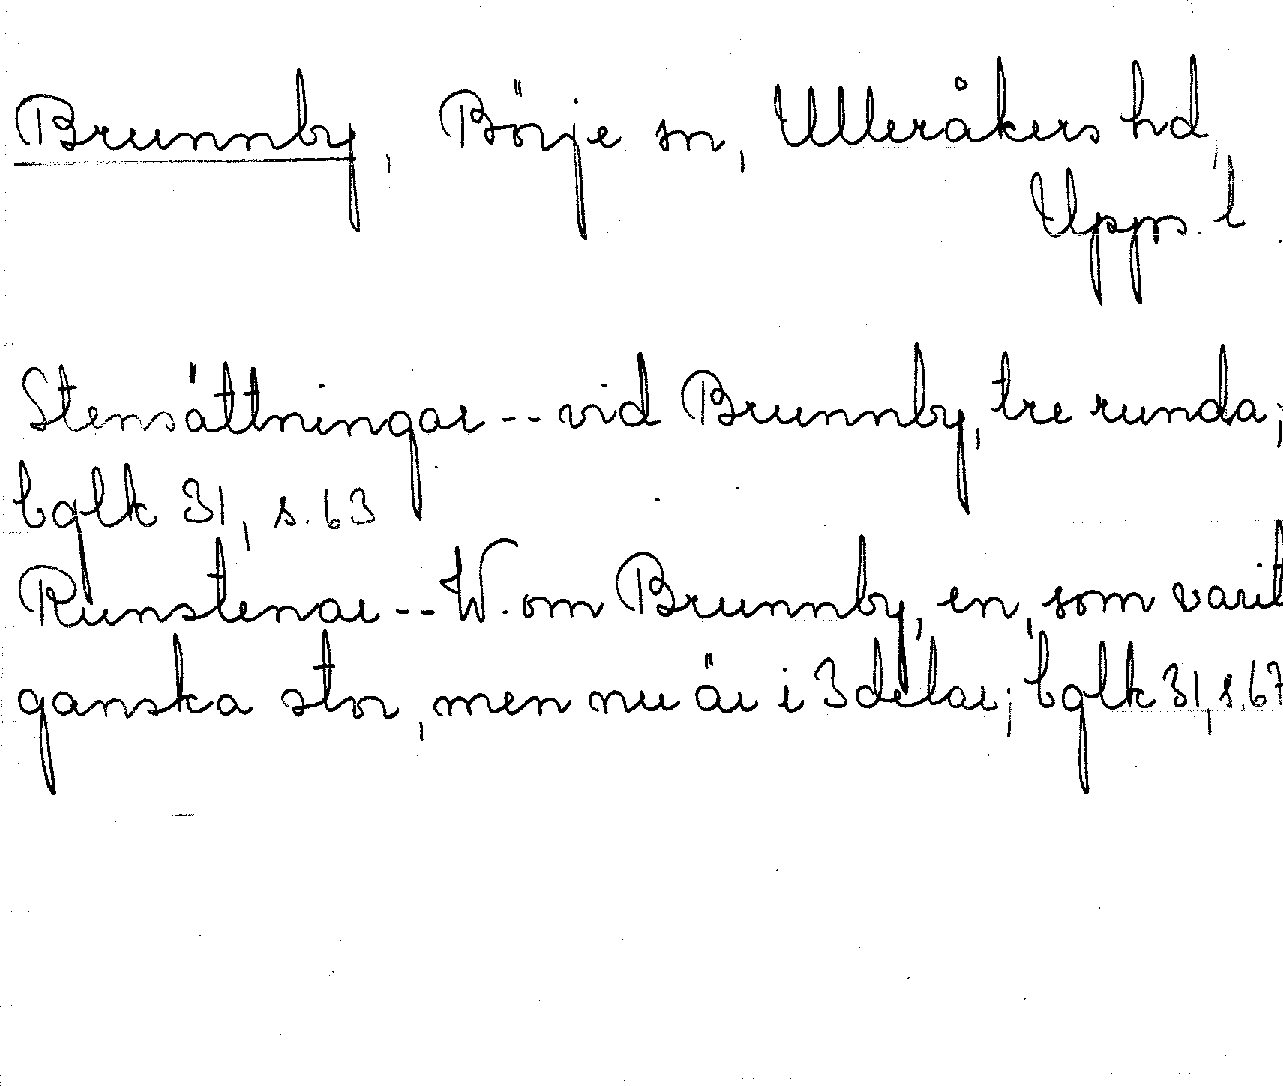 Brunnby, Börje sn, Ulleråkers hd,
Upps. l
Stensättningar -- vid Brunnby, tre runda;
bglk 31, s. 63
Runstenar -- W. om Brunnby, en, som varit
ganska stor, men nu är i 3 delar; bglk 31, s. 67